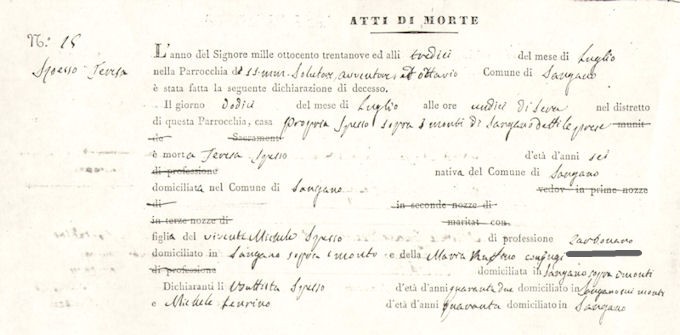 ATTI DI MORTE
N.° 15
Spesso Teresa
L'anno del Signore mille ottocento trentanove ed alli tredici del mese di Luglio
nella Parrocchia de SS. mm. Solutore, avventore, ed ottavio Comune di Sangano
è stata fatta la seguente dichiarazione di decesso.
Il giorno Dodici del mese di Luglio alle ore undici di sera nel distretto
di questa Parrocchia, casa propria Spesso sopra i monti di Sangano detti le prese munit
de Sacramenti
è morta Teresa Spesso d'età d'anni sei
di professione nativa del Comune di Sangano
domiciliata nel Comune di Sangano vedov in prime nozze
di in seconde nozze di
in terze nozze di maritat con
figlia del vivente Michele Spesso di professione
domiciliato in Sangano sopra i monti e della Maria conjugi
di professione domiciliata in Sangano sopra i monti
Dichiaranti li Battista Spesso d'età d'anni quaranta due domiciliato in Sangano sui monti
e Michele d'età d'anni quaranta domiciliato in Sangano